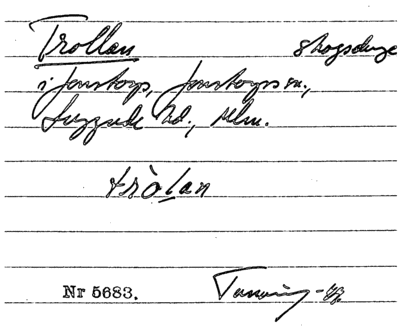 Trollan skogsdunge
i Jonstorp, Jonstorps sn.,
Luggude hd., Mlm.
tròlan
Nr 5683.